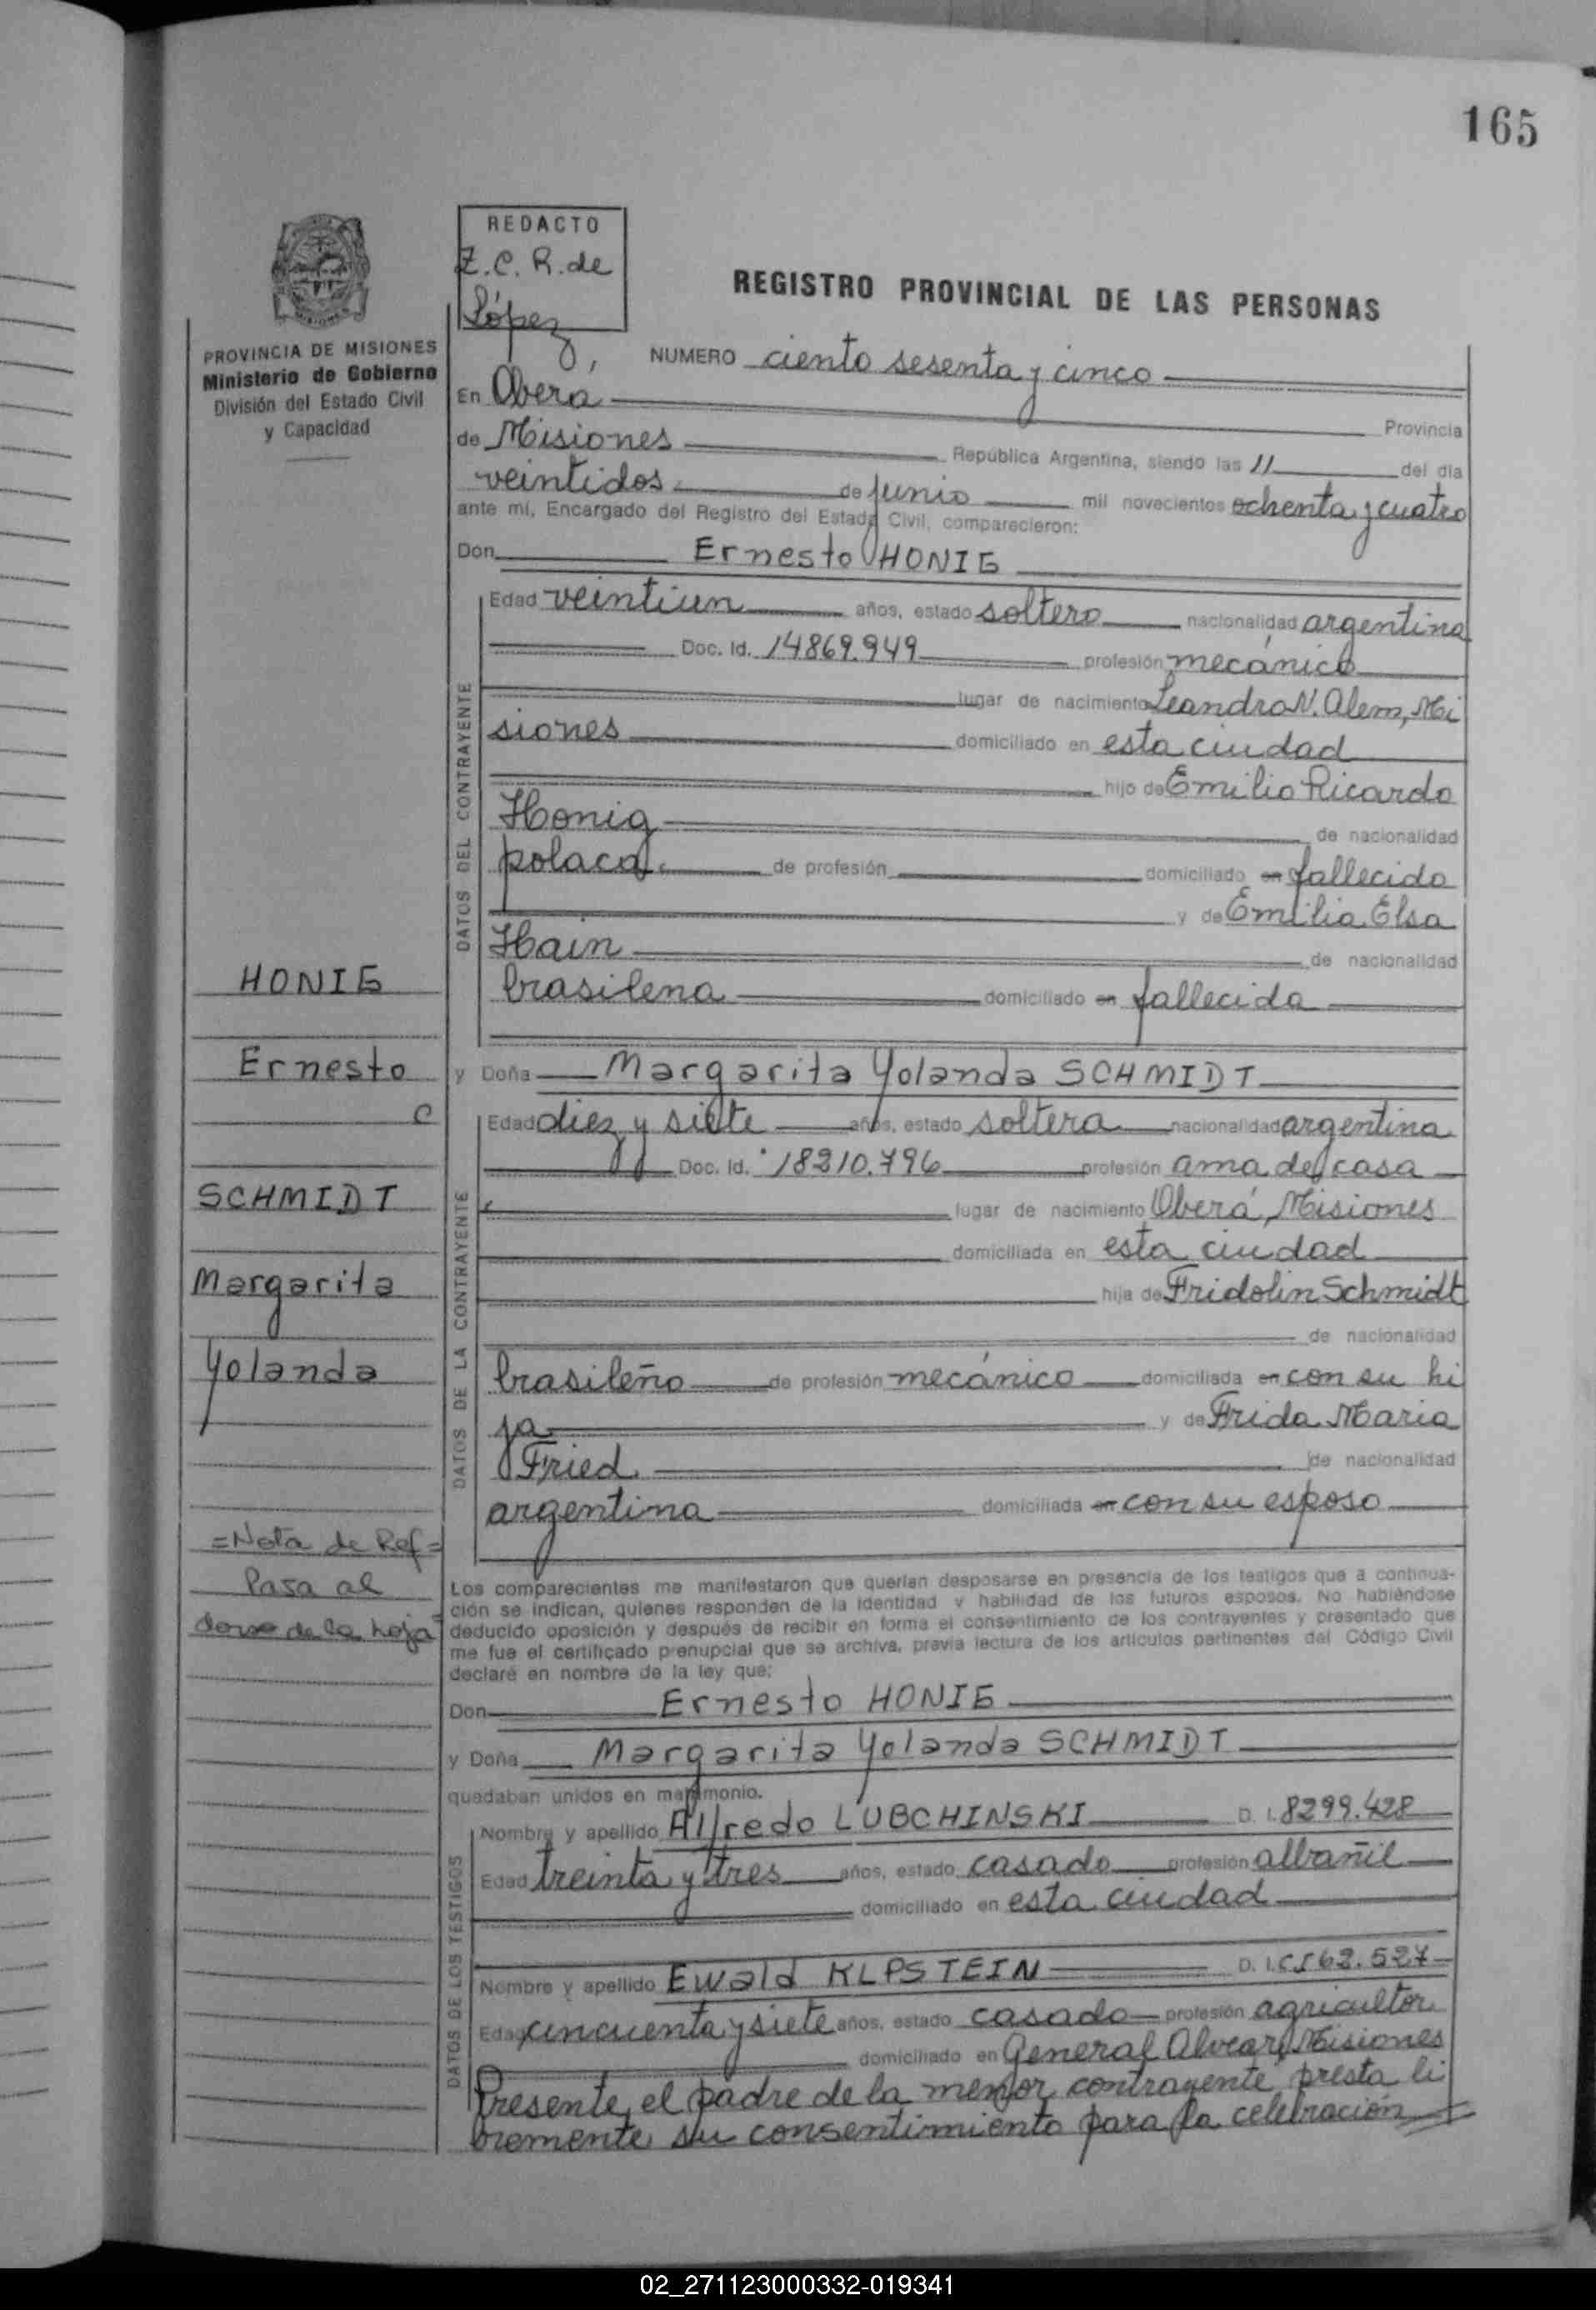 165
REDACTO
Z.C.R. de
López
REGISTRO PROVINCIAL DE LAS PERSONAS
PROVINCIA DE MISIONES
Ministerio de Gobierno
División del Estado Civil
y Capacidad
NUMERO ciento sesenta y cinco
En Obera
Provincia
de Misiones República Argentina, siendo las 11 del día
veintidos de junio mil novecientos ochenta y cuatro
ante mí, Encargado del Registro del Estado Civil, comparecieron:
Don Ernesto HONIG
DATOS DEL CONTRAYENTE
Edad veintiun años, estado soltero nacionalidad argentina
Doc. Id. 14869.949 profesión mecánico
lugar de nacimiento Leandro N. Alem, Mi
siones domiciliado en esta ciudad
hijo de Emilio Ricardo
Honig de nacionalidad
polaca de profesión domiciliado en fallecido
y de Emilia Elsa
Hain de nacionalidad
brasilena domiciliado en fallecida
HONIG
Ernesto
c
SCHMIDT
Margarita
Yolanda
y Doña Margarita Yolanda SCHMIDT
DATOS DE LA CONTRAYENTE
Edad diez y siete años, estado soltera nacionalidad argentina
Doc. Id. 18210.796 profesión ama de casa
lugar de nacimiento Oberá, Misiones
domiciliada en esta ciudad
hija de Fridolin Schmidt
de nacionalidad
brasileño de profesión mecánico domiciliada en con su hi
ja y de Frida Maria
Fried de nacionalidad
argentina domiciliada en con su esposo
=Nota de Ref=
Pasa al
dorso de la hoja=
Los comparecientes me manifestaron que querían desposarse en presencia de los testigos que a continua-
ción se indican, quienes responden de la identidad y habilidad de los futuros esposos. No habiéndose
deducido oposición y después de recibir en forma el consentimiento de los contrayentes y presentado que
me fue el certificado prenupcial que se archiva, previa lectura de los artículos pertinentes del Código Civil
declaré en nombre de la ley que:
Don Ernesto HONIG
y Doña Margarita Yolanda SCHMIDT
quedaban unidos en matrimonio.
DATOS DE LOS TESTIGOS
Nombre y apellido Alfredo LUBCHINSKI D. I. 8299.428
Edad treinta y tres años, estado casado profesión albañil
domiciliado en esta ciudad
Nombre y apellido Ewald KLPSTEIN D. I.
Edad cincuenta y siete años, estado casado profesión agricultor
domiciliado en General Alvear, Misiones
Presente, el padre de la menor contrayente presta li
bremente su consentimiento para la celebración
02_271123000332-019341